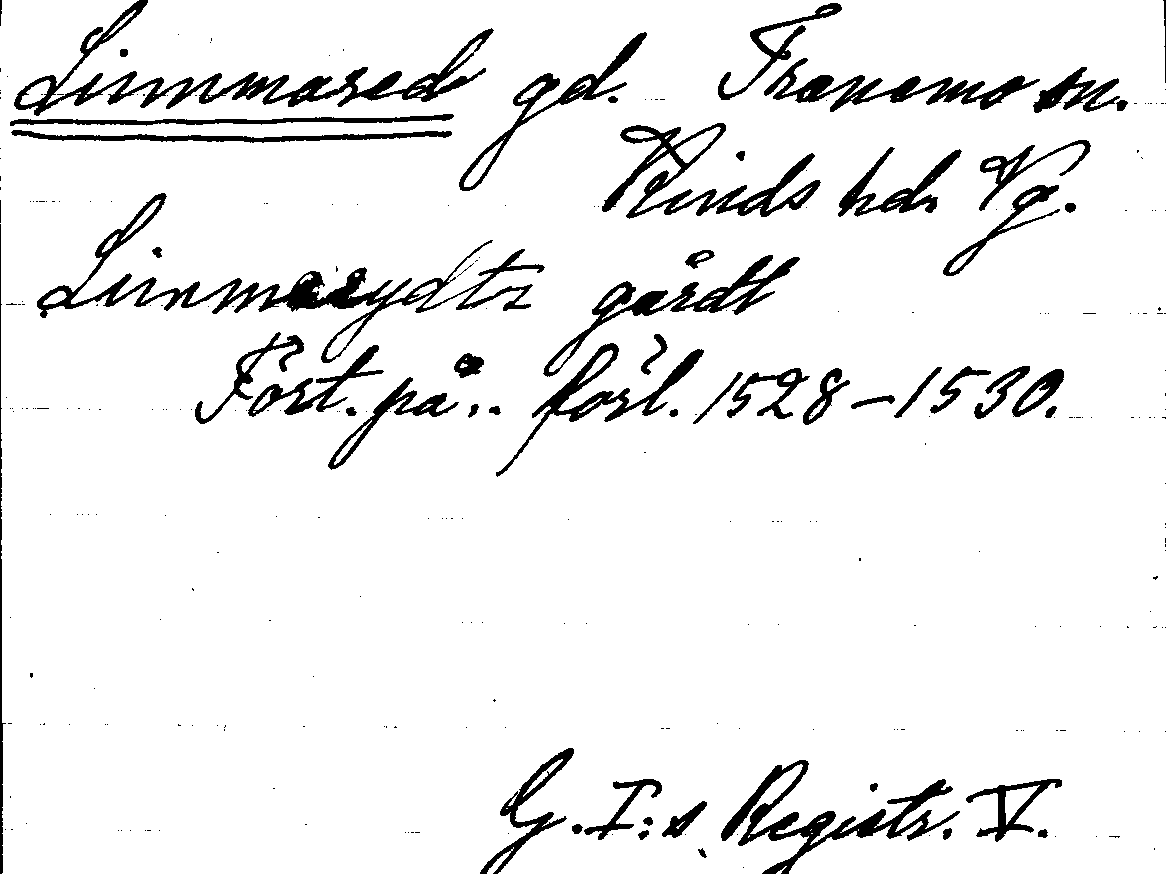 Limmared gd. Tranemo sn.
Kinds hd. Vg.
Limmarydtz gårdt
Fört. på .. förl. 1528–1530.
G. I:s Registr. V.